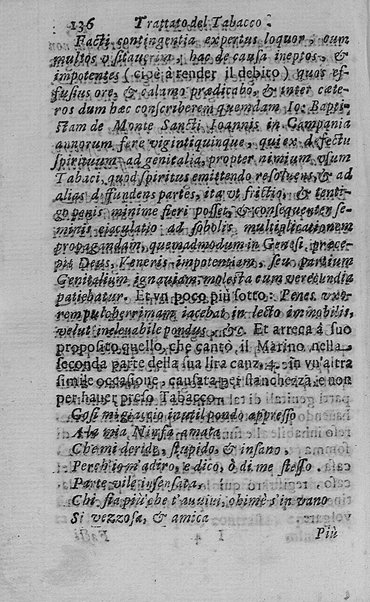 136 Trattato del Tabacco.
Facti contingentia expertus loquor, cum
multos v staurcim, hac de causa ineptos, &
impotentes (cioè à render il debito) quos ef-
fusius ore, & calamo prædicabo, & inter cæte-
ros dum hæc conscriberem quemdam Io: Bapti-
stam de Monte Sancti Ioannis in Campania
annorum fere vigintiquinque, qui ex defectu
spirituum ad genitalia, propter nimium vsum
Tabaci, quod spiritus emittendo resoluens, & ad
alias diffundens partes, ita vt frictio, & tenti-
go penis minime fieri posset, & consequenter se-
minis eiaculatio ad sobolis multiplicationem
propagandam, quemadmodum in Genesi præce-
pit Deus, Veneris impotentiam, seu partium
Genitalium ignauiam, molesta cum verecundia
patiebatur. Et vn poco più sotto: Penes vxo-
rem pulcherrimam iacebat in lecto immobilis,
velut inclouabile pondus, &c. Et arreca à suo
proposito quello, che cantò il Marino nella
seconda parte della sua lira canz. 4. in vn'altra
simile occasione, causata per stanchezza, e non
per hauer preso Tabacco.
Così mi giaccio inutil pondo appresso
A la mia Ninfa amata
Che mi deride, stupido, & insano,
Perch'io m'adiro, e dico, ò di me stesso.
Parte vile insensata,
Chi sia più che t'auuiui, ohime s'in vano
Si vezzosa, & amica
I 4 Più